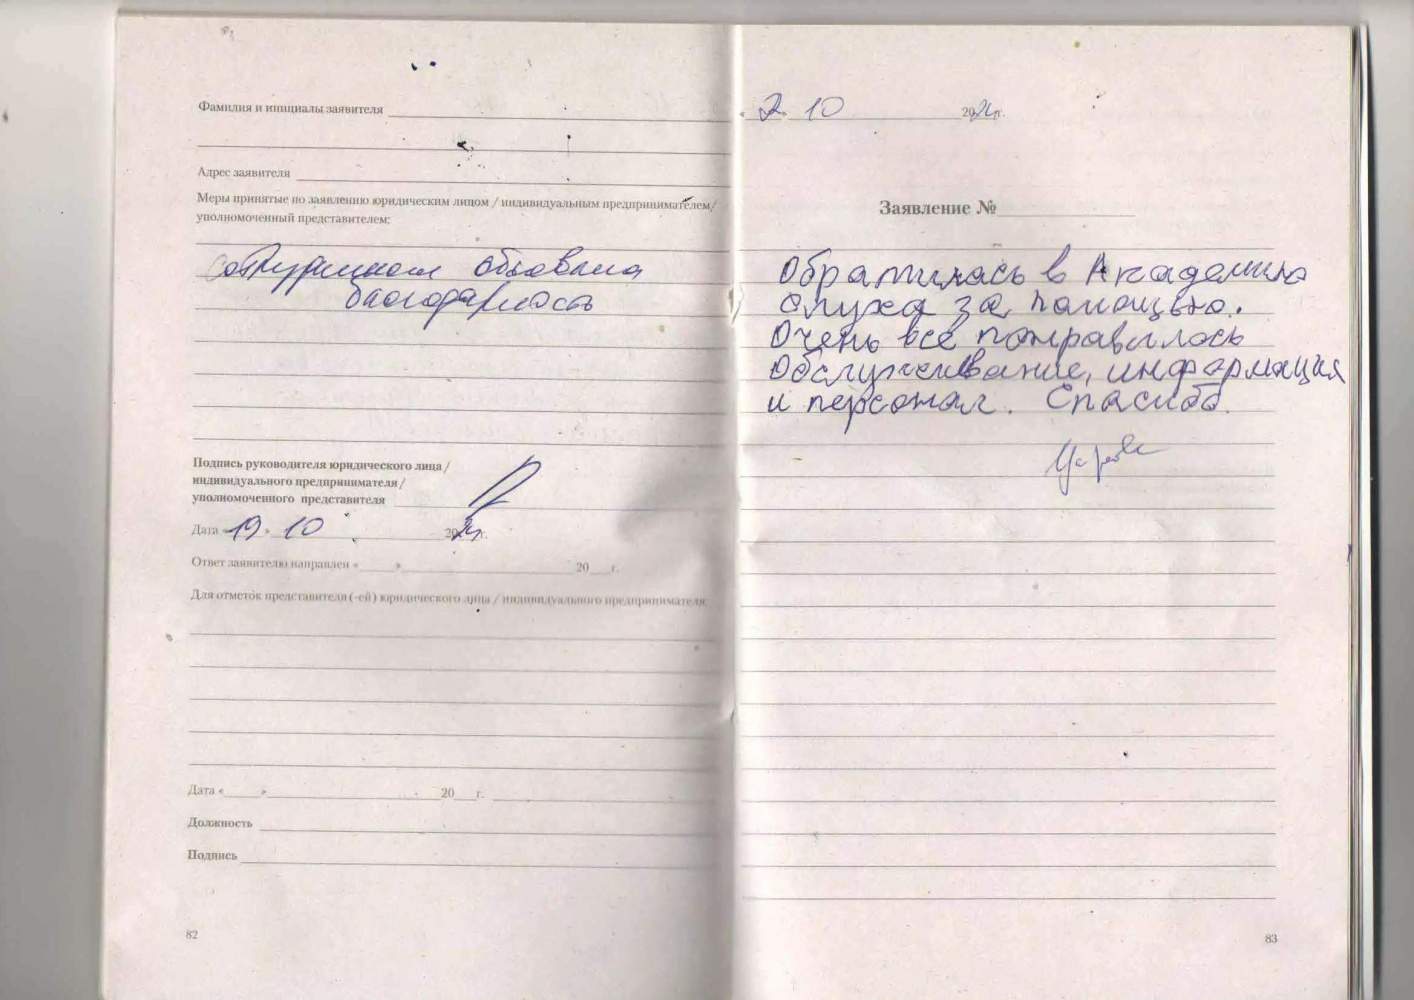 Фамилия и инициалы заявителя
Адрес заявителя
Меры принятые по заявлению юридическим лицом / индивидуальным предпринимателем/
уполномоченный представителем:
Сотрудникам объявлена
благодарность
Подпись руководителя юридического лица /
индивидуального предпринимателя /
уполномоченного представителя
Дата «19» 10 2024г.
Ответ заявителю направлен «____»____ 20__г.
Для отметок представителя (-ей) юридического лица / индивидуального предпринимателя
Дата «____»____ 20__г.
Должность
Подпись
82
«2» 10 2024г.
Заявление №
Обратилась в Академию
слуха за помощью.
Очень все понравилось
Обслуживание, информация
и персонал. Спасибо.
83